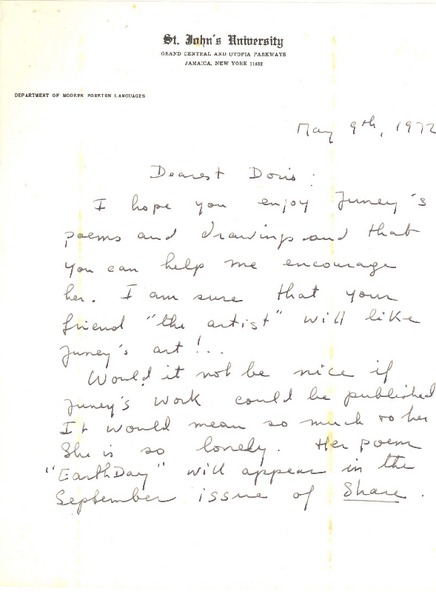 St. John's University
GRAND CENTRAL AND UTOPIA PARKWAYS
JAMAICA, NEW YORK 11432
DEPARTMENT OF MODERN FOREIGN LANGUAGES
May 9th, 1972
Dearest Doris:
I hope you enjoy Juney's
poems and drawings and that
you can help me encourage
her. I am sure that your
friend "the artist" will like
Juney's art!..
Would it not be nice if
Juney's work could be published
It would mean so much to her
She is so lonely. Her poem
"EarthDay" will appear in the
September issue of Share.